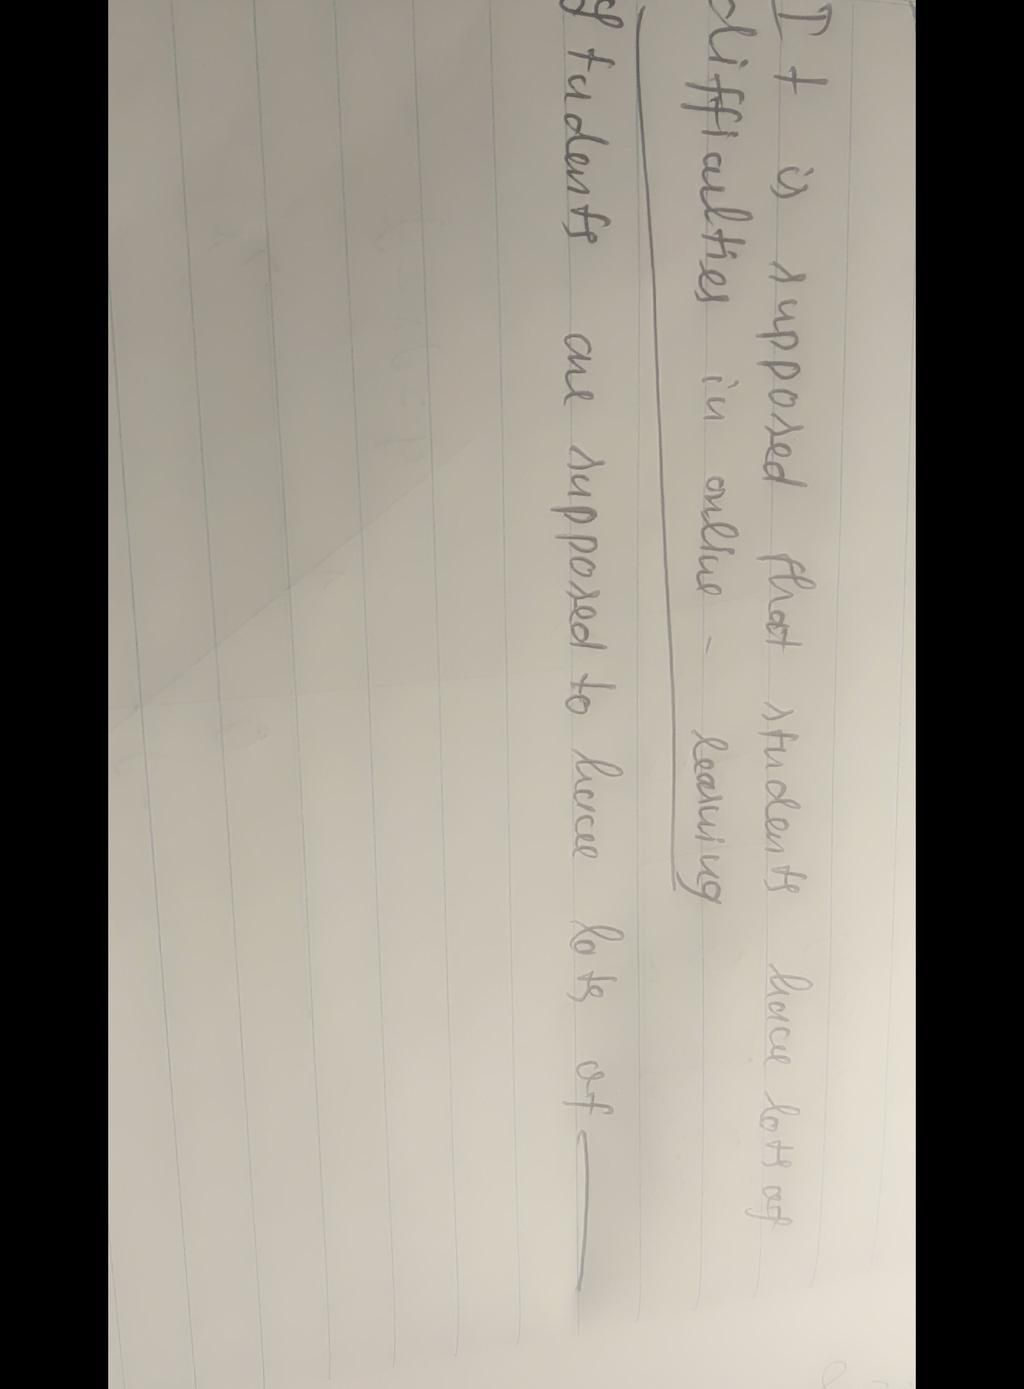 It is supposed that students have lots of
difficulties in online - learning
Students are supposed to have lots of